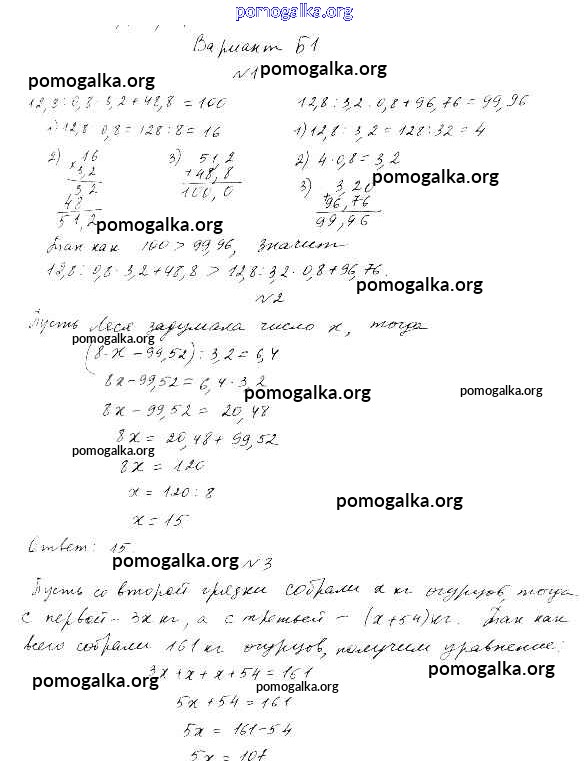 pomogalka.org
Вариант Б1
№1 pomogalka.org
pomogalka.org
12,8 : 0,8 · 3,2 + 48,8 = 100
12,8 : 3,2 · 0,8 + 96,76 = 99,96
1) 12,8 : 0,8 = 128 : 8 = 16
1) 12,8 : 3,2 = 128 : 32 = 4
2) 16
× 3,2
3,2
48
51,2
3) 51,2
+ 48,8
100,0
2) 4 · 0,8 = 3,2
pomogalka.org
3) 3,20
+ 96,76
99,96
pomogalka.org
Так как 100 > 99,96, значит
12,8 : 0,8 · 3,2 + 48,8 > 12,8 : 3,2 · 0,8 + 96,76.
pomogalka.org
№2
Пусть Леся задумала число x, тогда
pomogalka.org
(8·x − 99,52) : 3,2 = 6,4
8x − 99,52 = 6,4 · 3,2
pomogalka.org
pomogalka.org
8x − 99,52 = 20,48
8x = 20,48 + 99,52
pomogalka.org
8x = 120
x = 120 : 8
pomogalka.org
x = 15
Ответ: 15.
pomogalka.org №3
Пусть со второй грядки собрали x кг огурцов, тогда
с первой – 3x кг, а с третьей – (x + 54) кг. Так как
всего собрали 161 кг огурцов, получим уравнение:
3x + x + x + 54 = 161
pomogalka.org
pomogalka.org
pomogalka.org
5x + 54 = 161
5x = 161 − 54
5x = 107